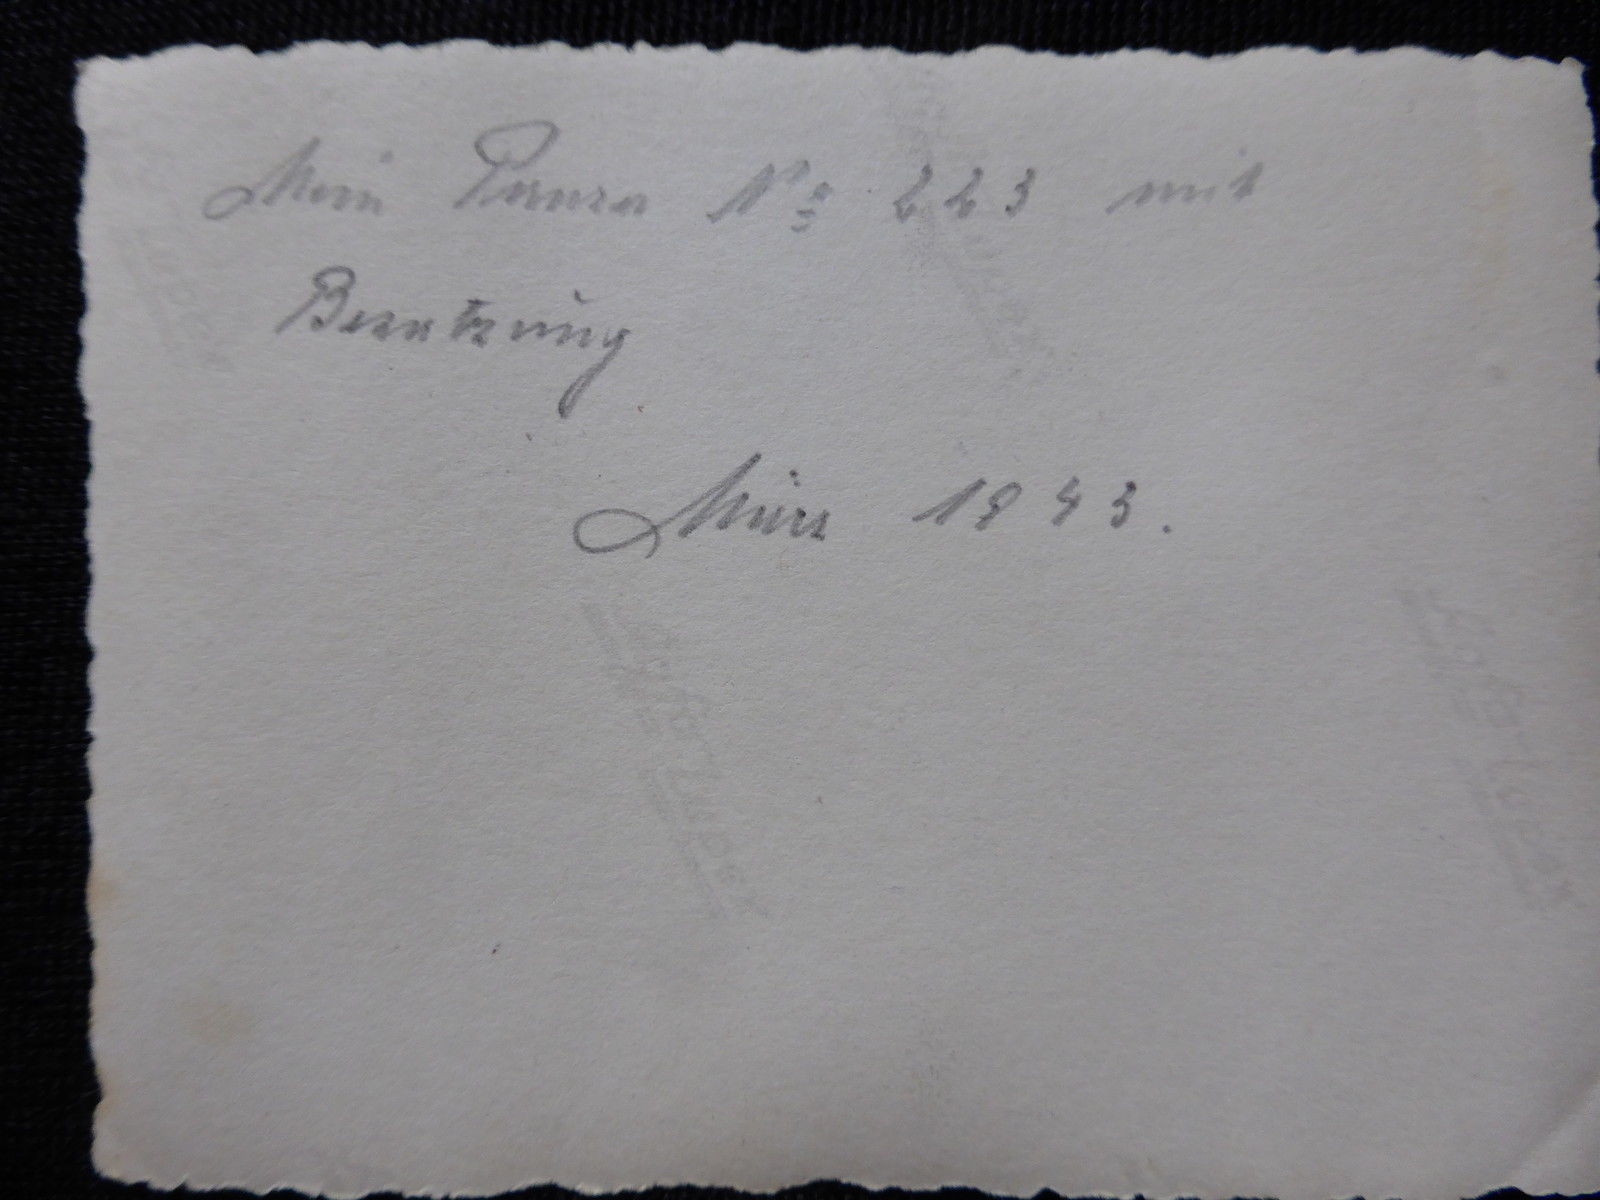 Mein Panzer No 223 mit
Besatzung
März 1943.